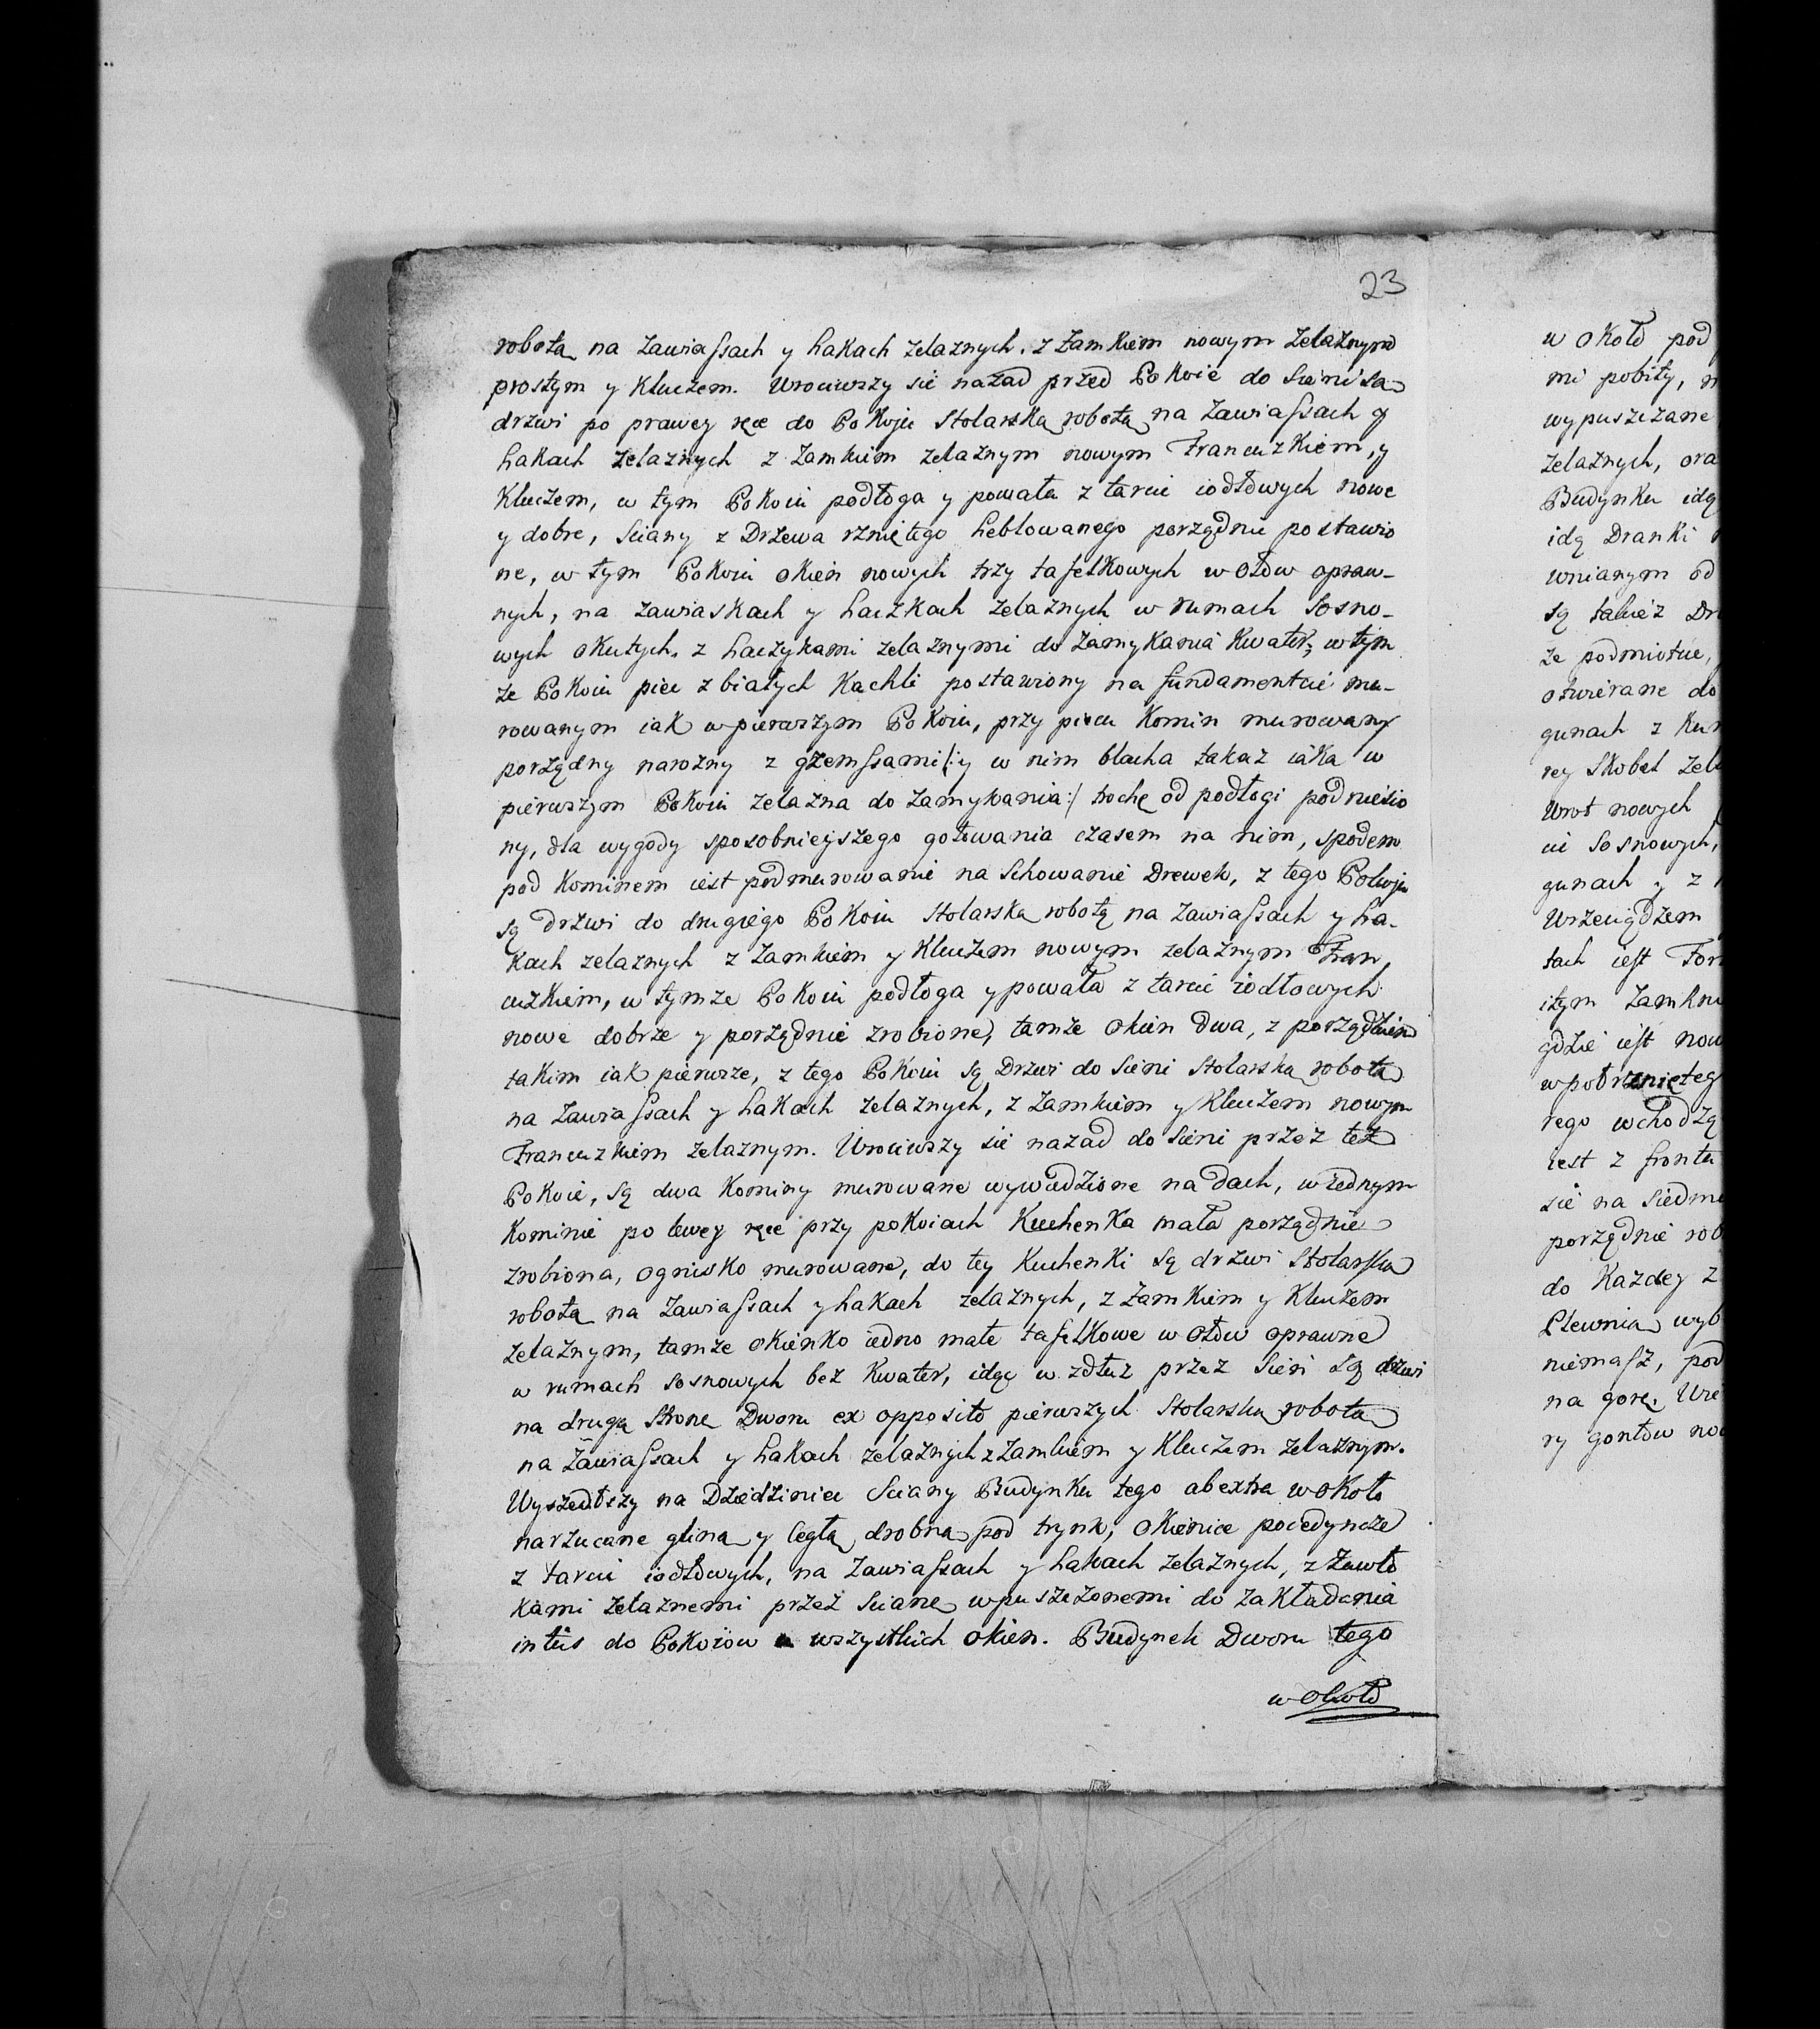 23
robotą na Zawiassach y hakach zelaznych. z Zamkiem nowym Zelaznym
prostym y Kluczem. Wrociwszy się nazad przed Pokoie do Sieni są
drzwi po prawey ręce do Pokoju Stolarską robotą na Zawiassach y
hakach zelaznych z Zamkiem zelaznym nowym Francuzkiem, y
Kluczem, w tym Pokoiu podłoga y powała z tarcic iodłowych nowe
y dobre, Sciany z Drzewa rzniętego heblowanego porządnie postawio
ne, w tym Pokoiu okien nowych trzy tafelkowych w ołow opraw-
nych, na zawiaskach y haczkach zelaznych w ramach Sosno-
wych okutych. z haczykami zelaznymi do Zamykania Kwater, w tym
ze Pokoiu piec z białych Kachli postawiony na fundamencie mu-
rowanym iak w pierwszym Pokoiu, przy piecu Komin murowany
porządny narozny z gzemssami /: y w nim blacha takaz iaka w
pierwszym Pokoiu zelazna do zamykania :/ trochę od podłogi podniesio
ny, dla wygody sposobnieyszego gotowania czasem na nim, spodem
pod Kominem iest podmurowanie na Schowanie Drewek, z tego Pokoju
są drzwi do drugiego Pokoiu Stolarską robotą na Zawiassach y ha-
kach zelaznych z Zamkiem y Kluczem nowym zelaznym Fran
cuzkiem, w tymze Pokoiu podłoga y powała z tarcic iodłowych
nowe dobrze y porządnie zrobione, tamze okien dwa, z porządkiem
takim iak pierwsze, z tego Pokoiu są Drzwi do Sieni Stolarską robotą
na Zawiassach y hakach zelaznych, z Zamkiem y Kluczem nowym
Francuzkiem zelaznym. Wrociwszy się nazad do Sieni przez też
Pokoie, są dwa Kominy murowane wywiedzione na dach, w iednym
Kominie po lewey ręce przy pokoiach Kuchenka mała porządnie
zrobiona, ognisko murowane, do tey Kuchenki są drzwi Stolarską
robotą na Zawiassach y hakach zelaznych, z Zamkiem y Kluczem
zelaznym, tamze okienko iedno małe tafelkowe w ołow oprawne
w ramach sosnowych bez Kwater, idąc w zdłuz przez Sień są drzwi
na drugą Stronę Dworu ex opposito pierwszych Stolarską robotą
na Zawiassach y hakach zelaznych z Zamkiem y Kluczem zelaznym.
Wyszedłszy na Dziedziniec Sciany Budynku tego ab extra wokoło
narzucane gliną y cegłą drobną pod trynk, okienice poiedyncze
z tarcic iodłowych, na Zawiassach y hakach zelaznych, z Zawło
kami zelaznemi przez Scianę wpuszczonemi do Zakładania
intus do Pokoiow u wszystkich okien. Budynek Dworu tego
w około
w około pod
mi pobity, n
wypuszczane
zelaznych, ora
Budynku idą
idą Dranki
wnianym od
są takiez Dr
ze podmiotne,
otwierane do
gunach z Kun
rey Skobel zel
Wrot nowych
cic Sosnowych,
gunach y z
Wrzeciądzem
tach iest For
iżym Zamkni
gdzie iest now
wpoł rznięteg
rego wchodzą
iest z frontu
się na Siedm
porządnie rob
do Kazdey z
Plewnia wyb
niemasz, pod
na gorę. Wre
ry gontow now